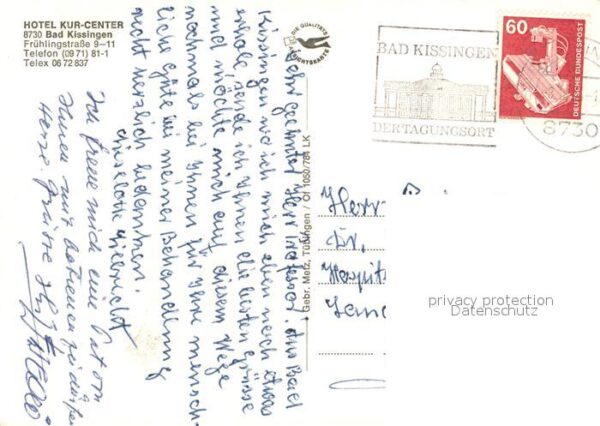 HOTEL KUR-CENTER
8730 Bad Kissingen
Frühlingstraße 9–11
Telefon (09 71) 81-1
Telex 06 72 837
DIE QUALITÄTS
BAD KISSINGEN
DER TAGUNGSORT
60
DEUTSCHE BUNDESPOST
8730
Sehr geehrter Herr Professor! Aus Bad
Kissingen wo ich mich eben noch etwas
erhole, sende ich Ihnen die besten Grüsse
und möchte mich auf diesem Wege
nochmals bei Ihnen für Ihre mensch-
liche Güte bei meiner Behandlung
recht herzlich bedanken.
Liselotte
Ich freue mich eine Zeit von
Ihnen mit betreuen zu dürfen
Herzl. Grüsse
Gebr. Metz, Tübingen
Herr
Dr.
Hospit
privacy protection
Datenschutz